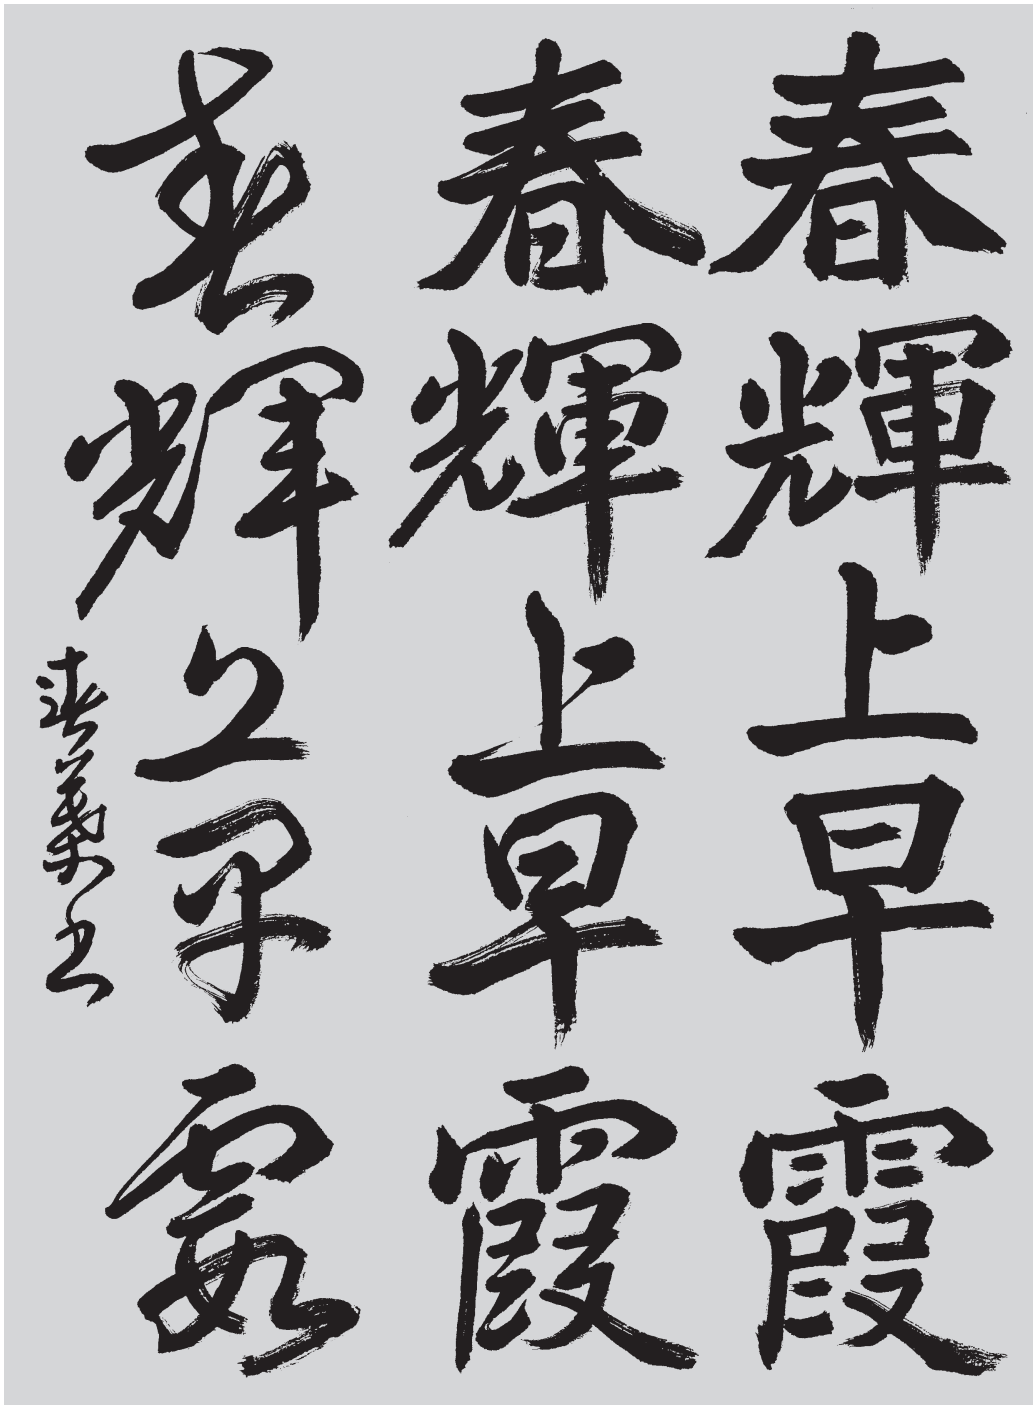 春輝上早霞
春輝上早霞
春輝上早霞
春葉書